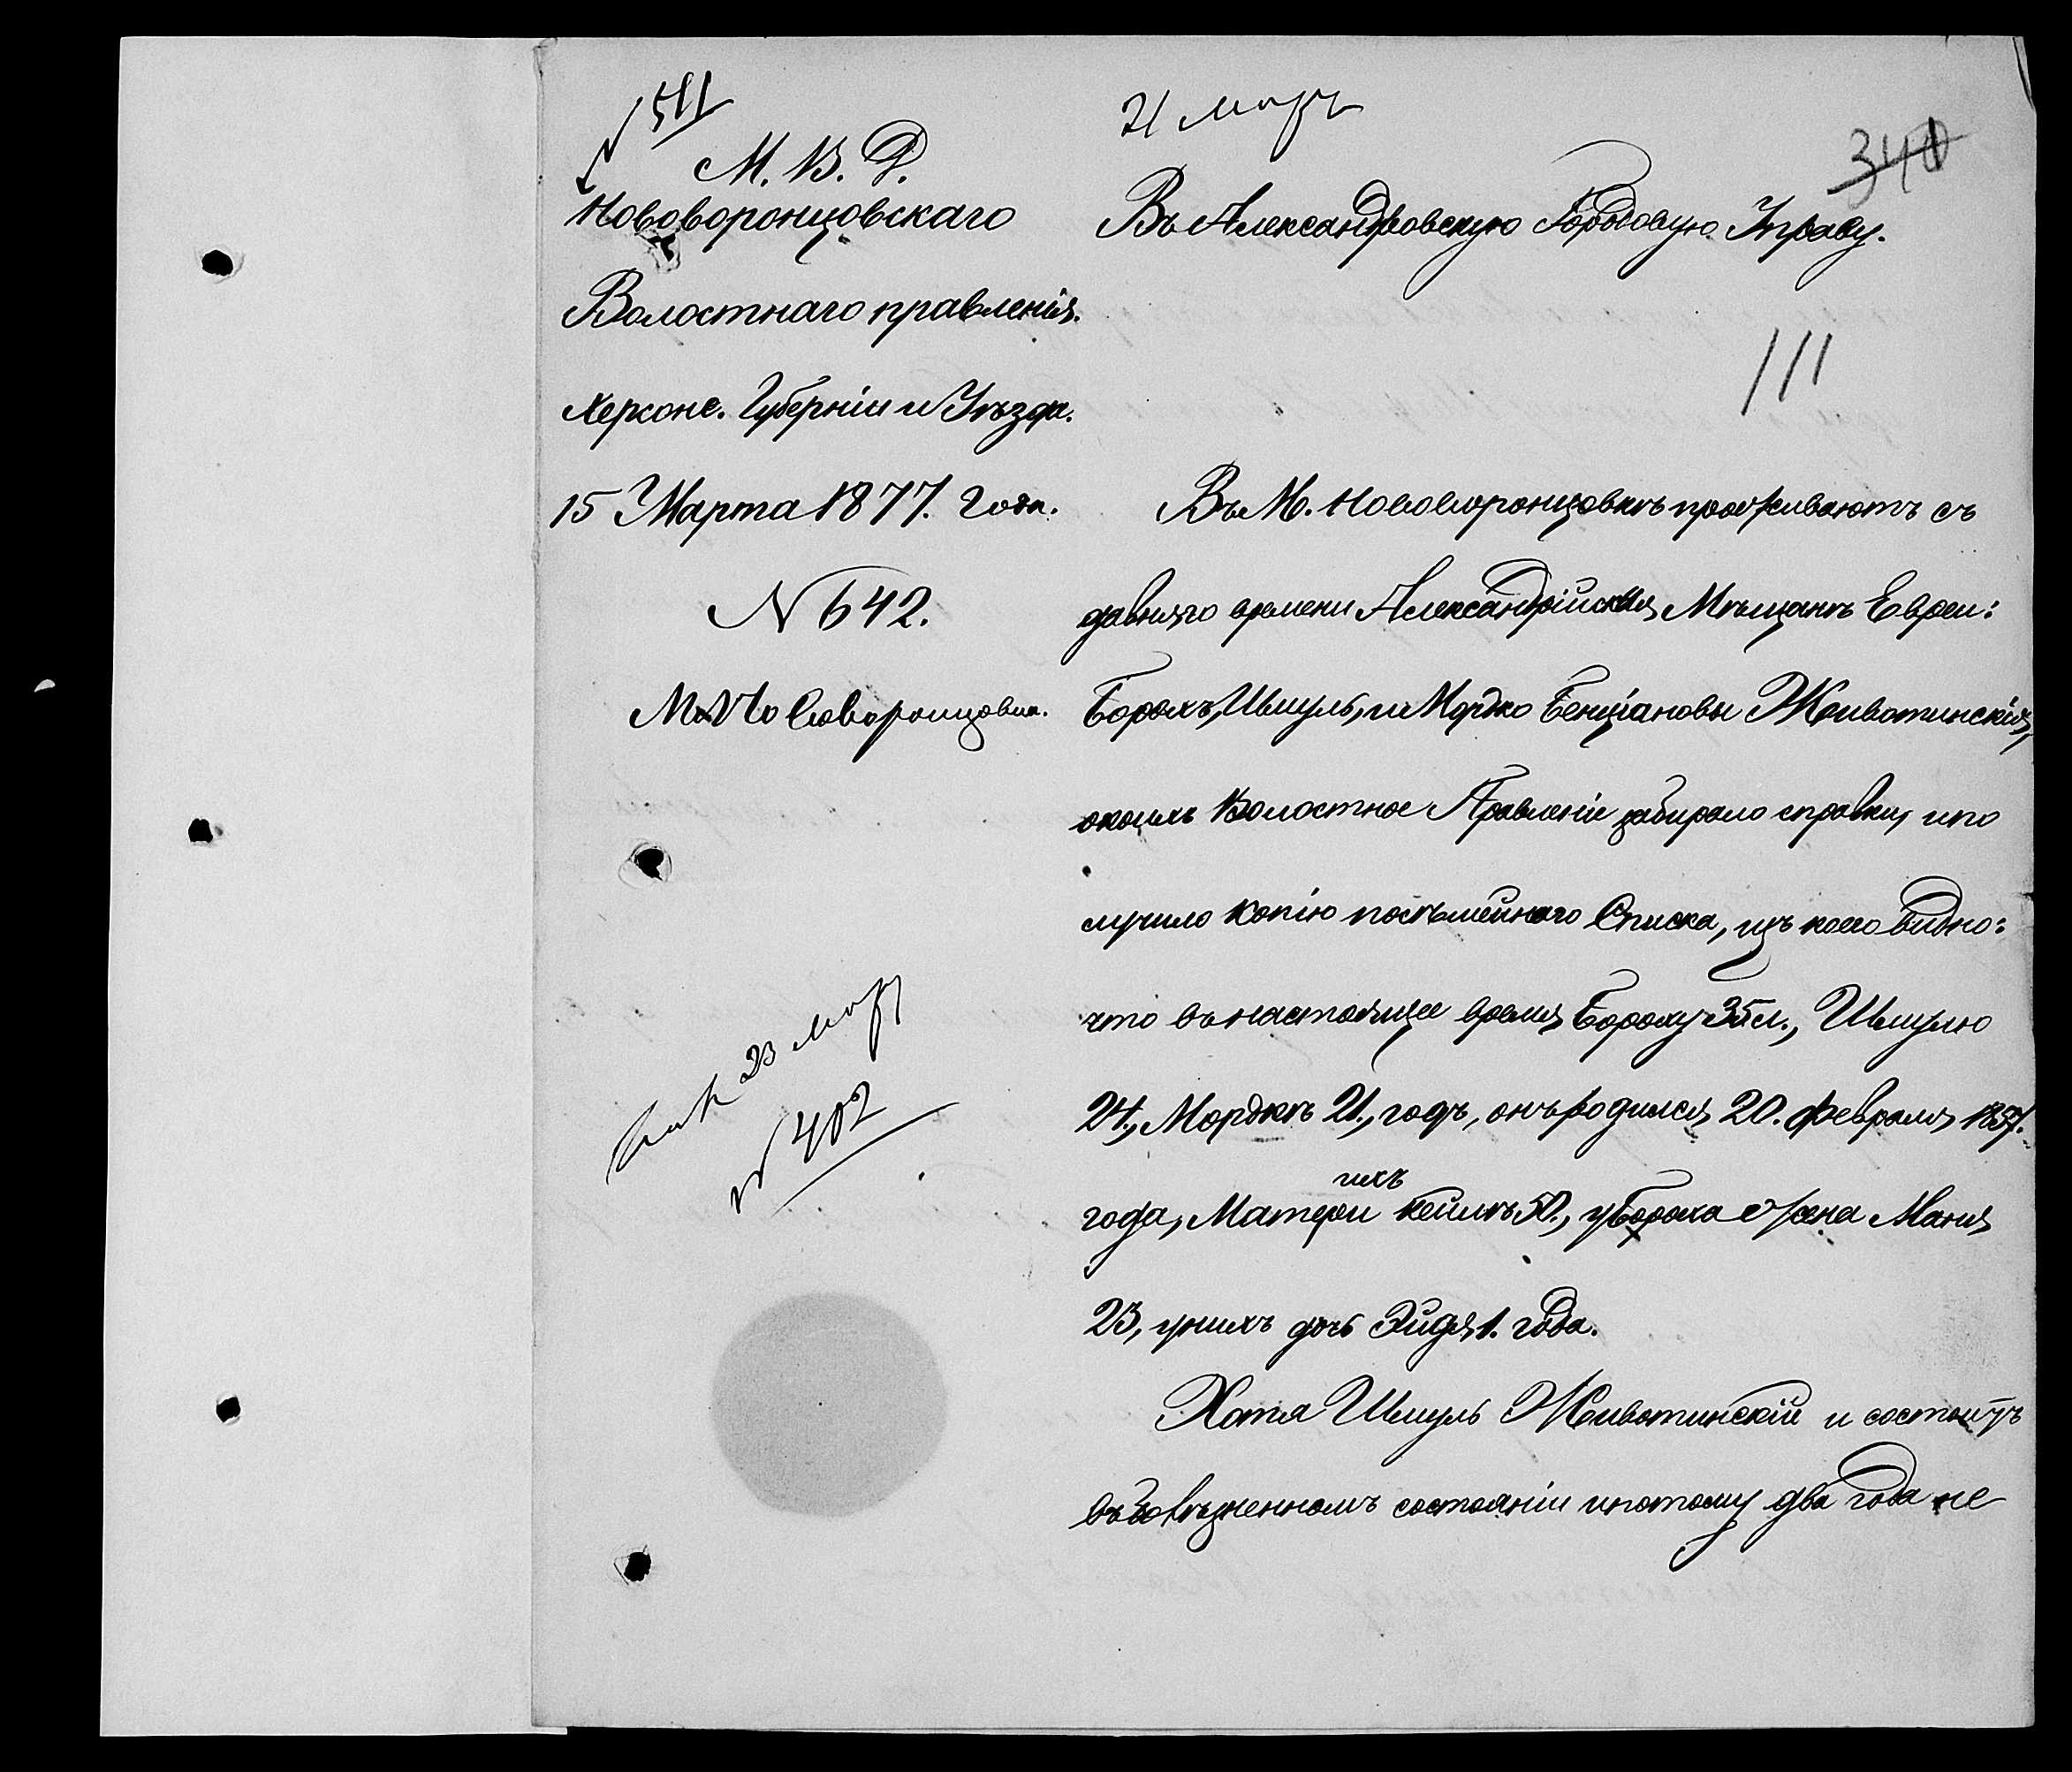 511
М. В. Д.
Нововоронцовскаго
Волостнаго правленія.
Херсонс. Губерніи и Уѣзда.
15 Марта 1877. года.
№ 642.
М. Нововоронцовка.
23 мар
№ 402
21 мар
340
Въ Александровскую Городовую Управу.
111
Въ М. Нововоронцовкѣ проживаютъ съ
давняго времени Александрійскія Мѣщанѣ Евреи:
Борохъ, Шмуль, и Мордко Бенціановы Животинскія,
окоихъ Волостное Правленіе забирало справки, ипо
лучило копію посѣмейнаго Списка, изъ коего видно:
что въ настоящее время Бороху 35 л., Шмулю
24, Мордкѣ 21, годъ, онъ родился 20. февраля 1857.
года, Матери ихъ Кейлѣ 50., у Бороха жена Маня
23, унихъ дочь Эйдя 1. года.
Хотя Шмуль Животинскій и состоитъ
въ состояніи ипотому два года не